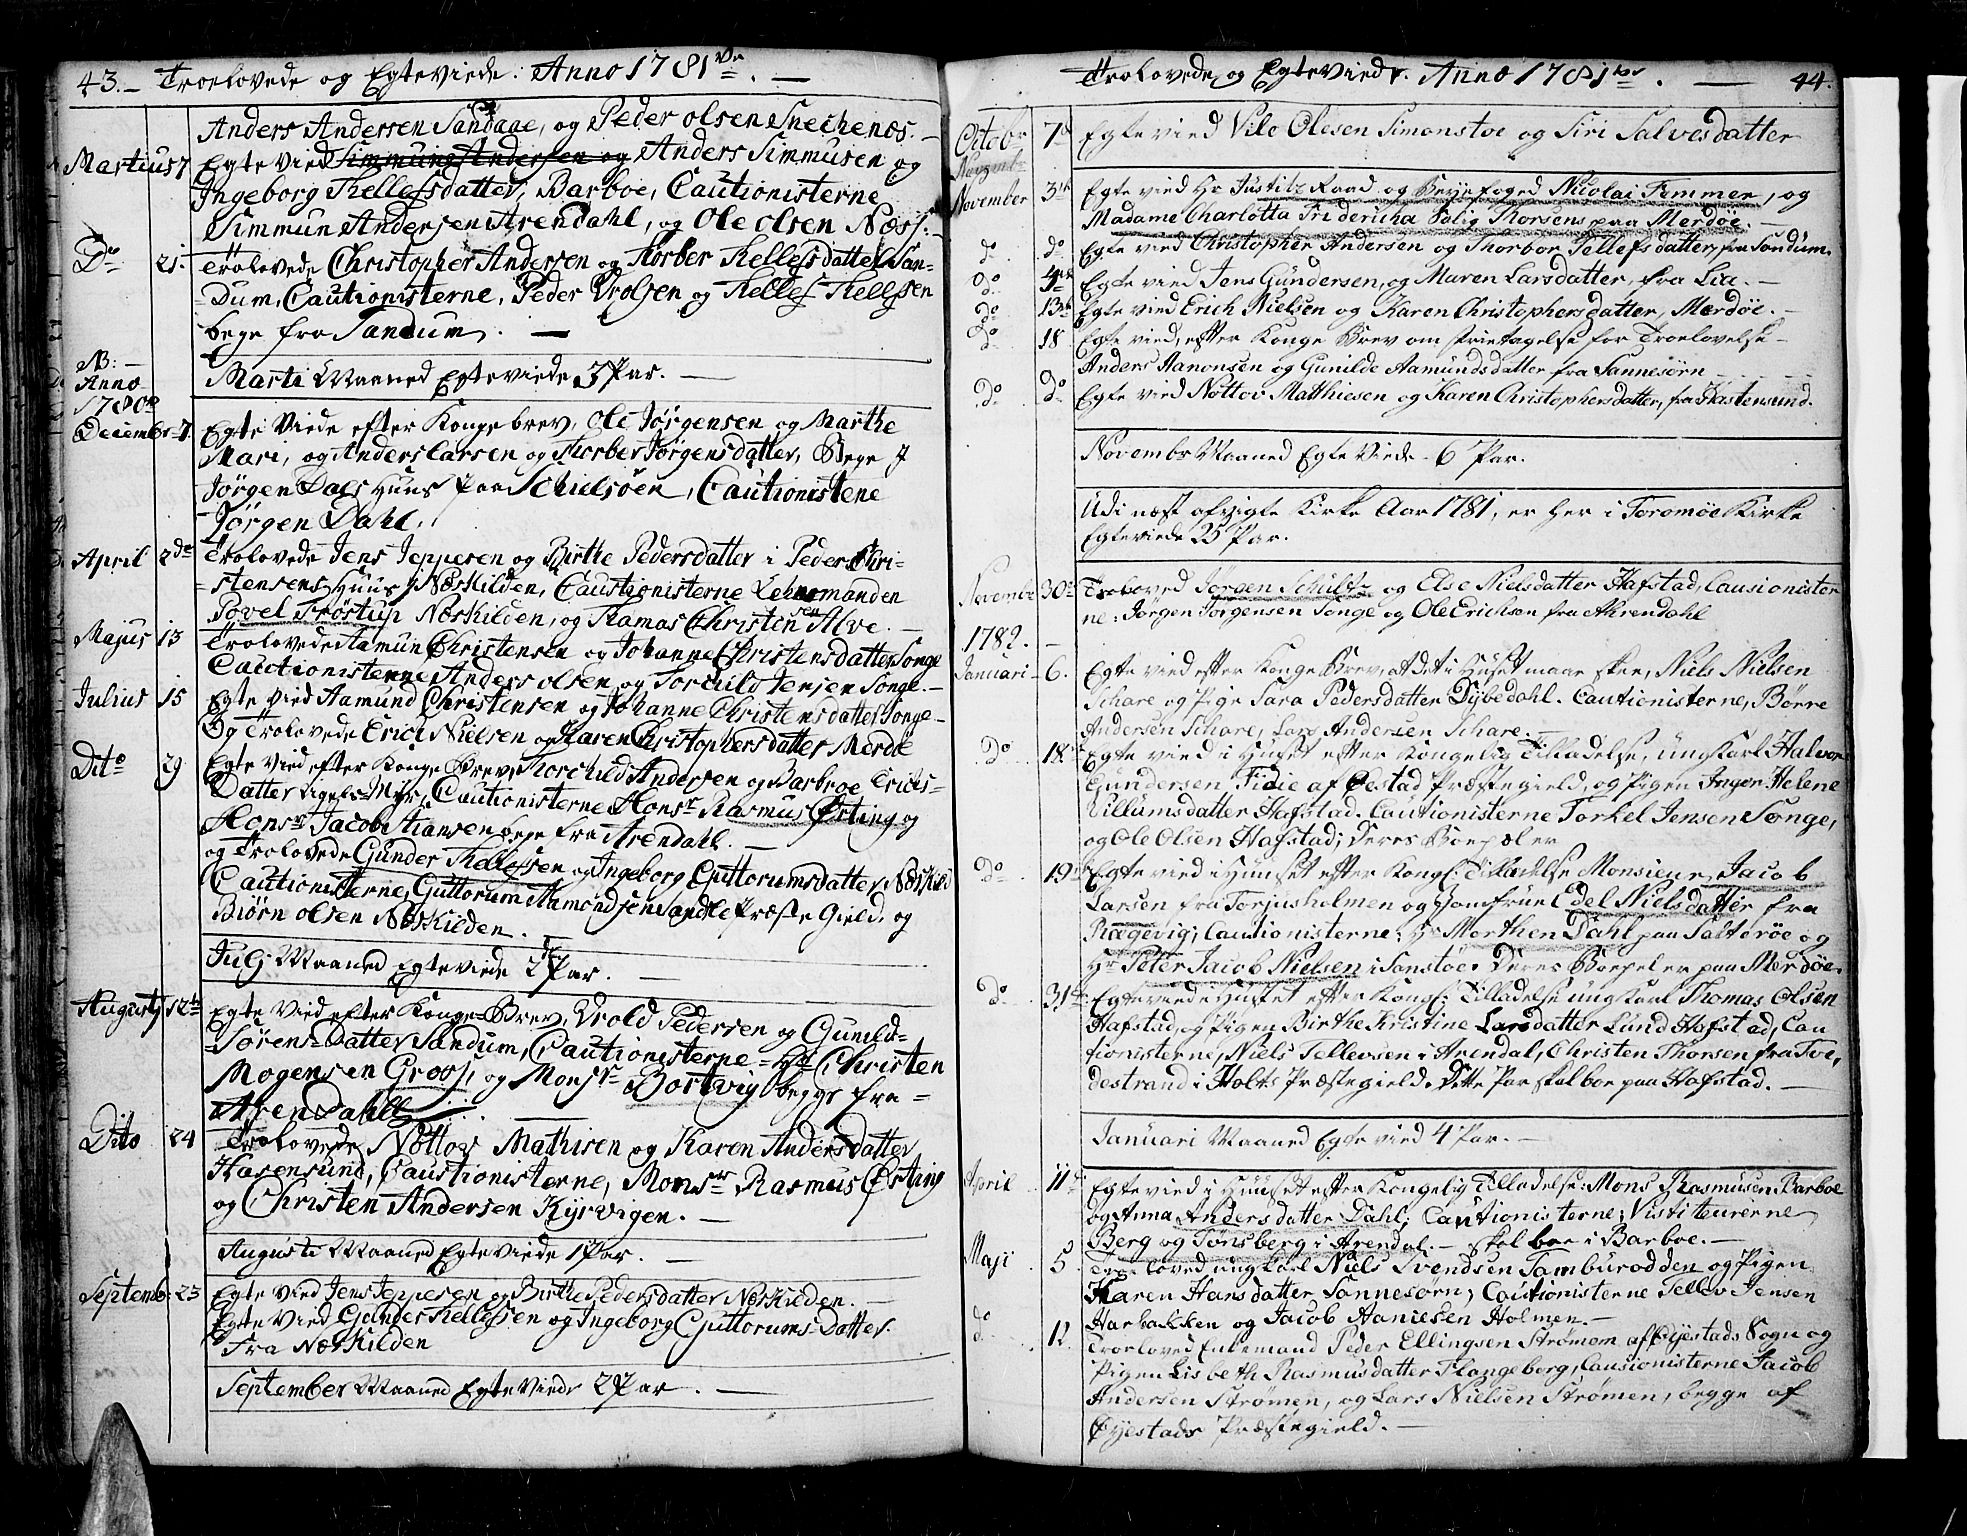 43. Troelovede og Egteviede. Anno 1781ve
Anders Andersen Sandage, og Peder olsen Snechenæs.
Martius 7 Egte Vied Simmuns Andersen og Anders Simmusen og
Ingeborg Kellefsdatter, Barboe, Cautionisterne
Simmun Andersen Arendahl, og Ole olsen Næss.
Do 21. Trolovede Christopher Andersen og Torber Kellefsdatter San-
Dum, Cautionisterne, Peder Vrolsen og Kellef Kellefsen
bege fra Sandum.
Marti Maaned Egteviede 3 Par.
NB:
Anno
1780
Decembr 7 Egte Viede efter Konge brev, Ole Jørgensen og Marthe
Mari, og Anders Larsen og Thorber Jørgensdatter, Bege I
Jørgen Dals Huus Paa Schielsøen, Cautionistene
Jørgen Dahl.
April 2de Trolovede Jens Jeppesen og Birthe Pedersdatter i Peder Chri-
stensens Huus, Næskilden, Caustionisterne Lehnsmanden
Povel Frøstup Næskilden, og Thamas Christensen Alve.
Majus 13 Trolovede Aamun Christensen og Johanne Christensdatter Songe
Cautionisterne Anders olsen og Torchild Jensen Songe.
Julius 15 Egte Vied Aamund Christensen og Johanne Christensdatter Songe
Og Trolovede Erich Nielsen og Karen Christophersdatter Merdøe
Dito 29 Egte Vied efter Konge Brev Torchild Andersen og Barbroe Erichs-
Datter Myr, Cautionisterne Monsr Rasmus Ørsting og
Monsr Jacob Stiansen bege fra Arendahl.
og Trolovede Gunder Kellefsen og Ingeborg Guttorumsdatter Næskild
Cautionisterne, Guttorum Aamondsen Landle Præste Gield, og
Biørn olsen Næskilden.
Julj Maaned Egteviede 2 Par.
Augustj 12te Egte Vied efter Konge Brev, Vrold Pedersen og Gunild
Sørens Datter Sandum, Cautionisterne Hr Christen
Mogensen Groos, og Monsr Bortvig begge fra
Arendahl
Dito 24 Trolovede Nottov Mathisen og Karen Andersdatter
Hasensund, Caustionisterne, Monsr Rasmus Ørsting
og Christen Andersen Kyrvigen.
Augusti Maaned Egteviede 1 Par.
Septemb: 23 Egte Vied Jens Jeppesen og Birthe Pedersdatter Næskilden.
Egte Vied Gunder Kellefsen og Ingeborg Guttorums Datter
Fra Næskilden
September Maaned Egteviede 2 Par.
Trolovede og Egteviede. Anno 1781 44.
Octobr 7 Egte vied Vilo Olesen Simonstoe og Siri Salvesdatter
Novembr
November 3 Egte vied Hr Justitz Raad og Byefoged Nicolai Femmer, og
Madame Charlotta Fridericha Salig Thorsens paa Merdøe
do do Egte vied Christopher Andersen og Thorbor Tellefsdatter, fra Sandum.
do 4 Egte vied Jens Gundersen, og Maren Larsdatter, fra Lia.
do 13 Egte vied Erich Nielsen og Karen Christophersdatter, Merdøe.
do 18 Egte vied, efter Konge Brev om Fritagelse for Troelovelse
Anders Aanonsen og Gunilde Aamundsdatter fra Sannesørn
do do Egte vied Nottov Matthiesen og Karen Christophersdatter, fra Hastensund.
Novembr Maaned Egte Viede 6 Par.
Udi næst afvigte Kirke Aar 1781, er her i Tromøe Kirke
Egteviede 25 Par.
Novembr 30 Troloved Jørgen Schult og Else Nielsdatter Hafstad, Causionister
ne: Jørgen Jørgensen Songe og Ole Erichsen fra Ahrendahl
1782.
Januari 6. Egte vied efter Konge Brev, at det i Huset maae skee, Niels Nielsen
Schare og Pige Sara Pedersdatter Dybedahl. Cautionisterne, Børre
Andersen Schare, Lars Andersen Schare.
Do 18 Egte vied i Huuset efter Kongelig Tilladelse, ungkarl Halvor
Gundersen Fidie af Øestad Præstegield, og Pigen Inger Helene
Villumsdatter Hafstad. Cautionisterne Torkel Jensen Songe,
og Ole Olsen Hafstad; Deres Boepæl er
Do 19 Egte vied i Huuset efter Kongl: Tilladelse Monsieur, Jacob
Larsen fra Torjusholmen og Jomfrue Edel Nielsdatter fra
Rægevig; Cautionisterne: Hr Morthen Dahl paa Salterøe og
Hr Peter Jacob Nielsen i Sanstøe. Deres Boepel er paa Merdøe.
Do 31 Egte viede i Huset efter Kongl: Tilladelse ungkarl Thomas Olsen
Hafstad, og Pigen Birthe Kristine Larsdatter Lund Hafstad, Cau
tionisterne, Niels Tellevsen i Arendal, Christen Thorsen fra Tve,
destrand i Holts Præstegield. Dette Par skal boe paa Hafstad.
Januari Maaned Egte vied 4 Par.
April 11 Egte vied i Huuset efter Kongelig Tilladelse: Mons Rasmusen Barboe
og Anna Andersdatter Dahl; Cautionisterne; Visiteurerne
Berg og Tønsberg i Arendal. skal boe i Barboe.
Maji 5 Troloved ungkarl Niels Svendsen Tamburodden og Pigen
Karen Hansdatter Sannesørn; Cautionisterne Tellev Jensen
Harbakken og Jacob Haniesen Holmen.
do 12 Troloved Enkemand Peder Ellingsen Strømøm af Øyestads Sogn og
Pigen Lisbeth Rasmusdatter Flangeborg, Causionisterne Jacob
Andersen Strømen, og Lars Nielsen Strømen, begge af
Øyestads Præstegield.